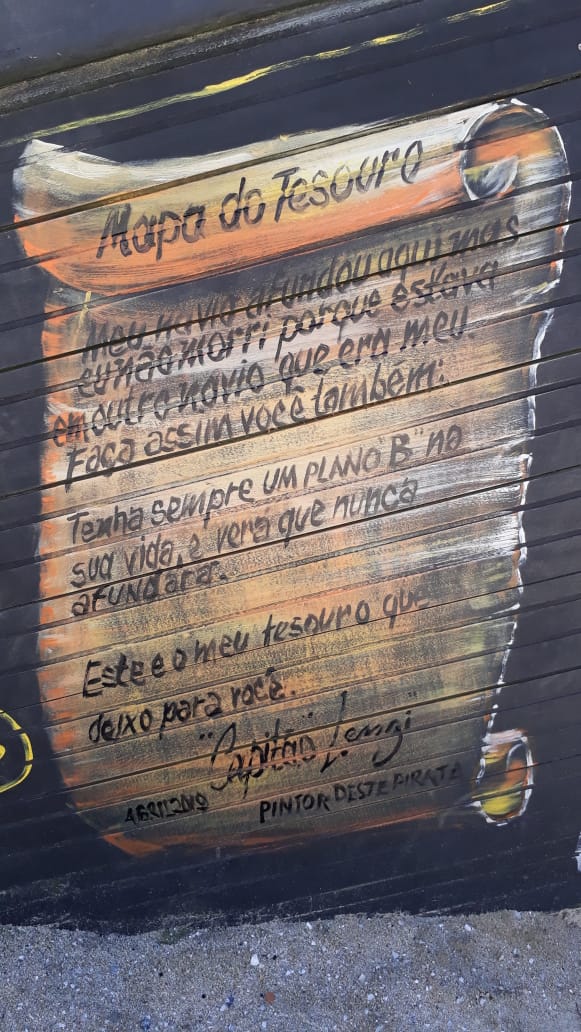 Mapa do Tesouro
Meu navio afundou aqui mas
eu não morri porque estava
em outro navio que era meu.
Faça assim você tambem:
Tenha sempre UM PLANO "B" na
sua vida, e verá que nunca
afundará.
Este e o meu tesouro que
deixo para você.
"Capitão" Lenzi
ABRIL 2019 PINTOR DESTE PIRATA